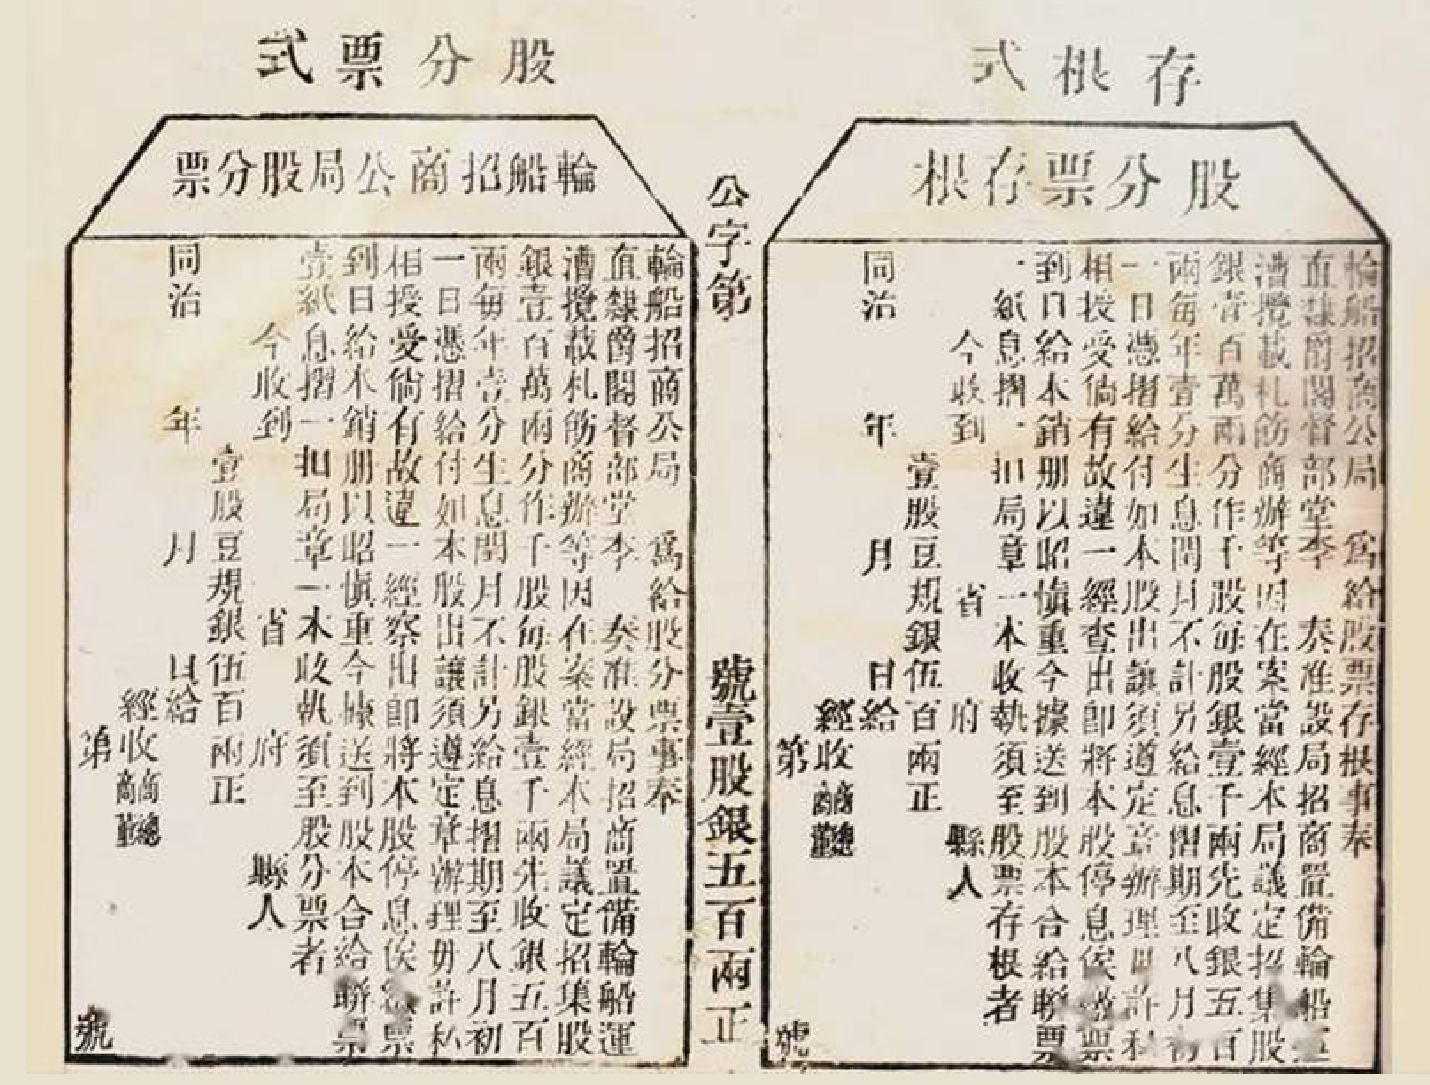 存根式
股分票存根
輪船招商公局 爲給股票存根事奉
直隸爵閣督部堂李 奏准設局招商置備輪船運
漕攬載札飭商辦等因在案當經本局議定招集股
銀壹百萬兩分作千股每股銀壹千兩先收銀五百
兩每年壹分生息閏月不計另給息摺期至八月初
一日憑摺給付如本股出讓須遵定章辦理毋許私
相授受倘有故違一經查出卽將本股停息俟繳票
到日給本銷册以昭愼重今據送到股本合給聯票
一紙息摺一扣局章一本收執須至股票存根者
今收到 省 府 縣人
壹股豆規銀伍百兩正
同治 年 月 日給
經收商總商董
第 號
公字第 號壹股銀五百兩正
股分票式
輪船招商公局股分票
輪船招商公局 爲給股分票事奉
直隸爵閣督部堂李 奏准設局招商置備輪船運
漕攬載札飭商辦等因在案當經本局議定招集股
銀壹百萬兩分作千股每股銀壹千兩先收銀五百
兩每年壹分生息閏月不計另給息摺期至八月初
一日憑摺給付如本股出讓須遵定章辦理毋許私
相授受倘有故違一經察出卽將本股停息俟繳票
到日給本銷册以昭愼重今據送到股本合給聯票
壹紙息摺一扣局章一本收執須至股分票者
今收到 省 府 縣人
壹股豆規銀伍百兩正
同治 年 月 日給
經收商總商董
第 號